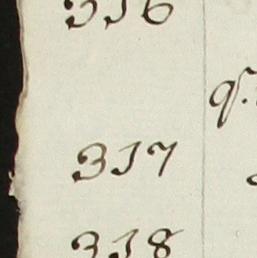 316
317
318